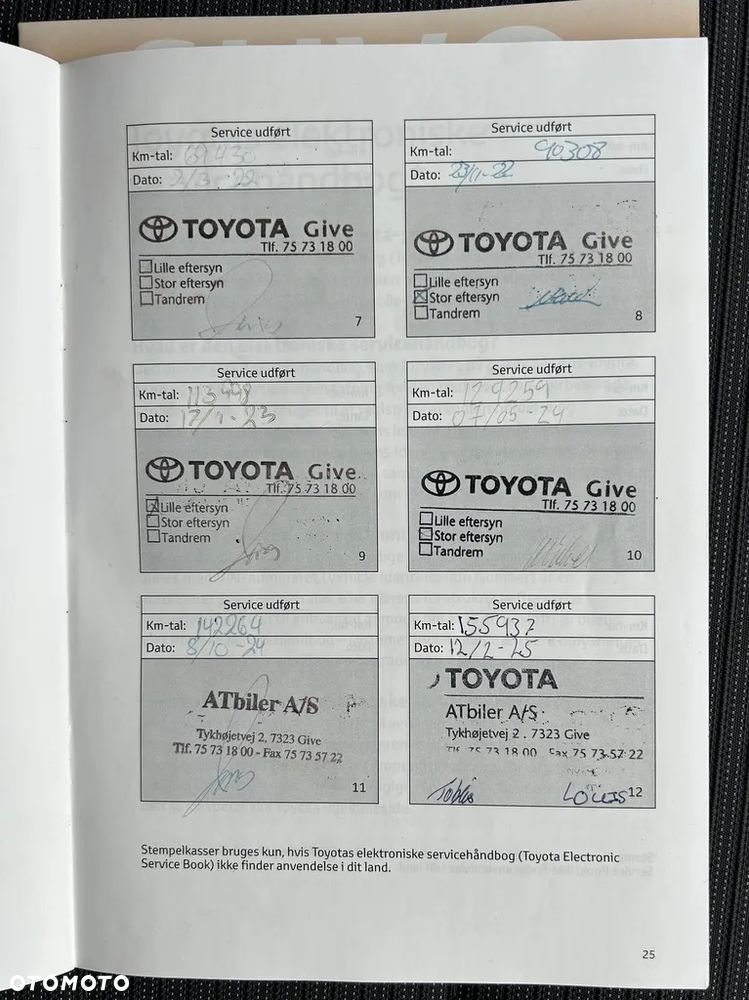 Service udført
Km-tal: 69430
Dato: 2/3-22
TOYOTA Give
Tlf. 75 73 18 00
Lille eftersyn
Stor eftersyn
Tandrem
7
Service udført
Km-tal: 90308
Dato: 23/11-22
TOYOTA Give
Tlf. 75 73 18 00
Lille eftersyn
Stor eftersyn
Tandrem
8
Service udført
Km-tal: 113998
Dato: 17/11-23
TOYOTA Give
Tlf. 75 73 18 00
Lille eftersyn
Stor eftersyn
Tandrem
9
Service udført
Km-tal: 129259
Dato: 07/05-24
TOYOTA Give
Tlf. 75 73 18 00
Lille eftersyn
Stor eftersyn
Tandrem
10
Service udført
Km-tal: 142264
Dato: 8/10-24
ATbiler A/S
Tykhøjetvej 2, 7323 Give
Tlf. 75 73 18 00 - Fax 75 73 57 22
11
Service udført
Km-tal: 155937
Dato: 12/2-25
TOYOTA
ATbiler A/S
Tykhøjetvej 2 . 7323 Give
Tlf. 75 73 18 00 Fax 75 73 57 22
Tobias Louis
12
Stempelkasser bruges kun, hvis Toyotas elektroniske servicehåndbog (Toyota Electronic
Service Book) ikke finder anvendelse i dit land.
25
OTOMOTO